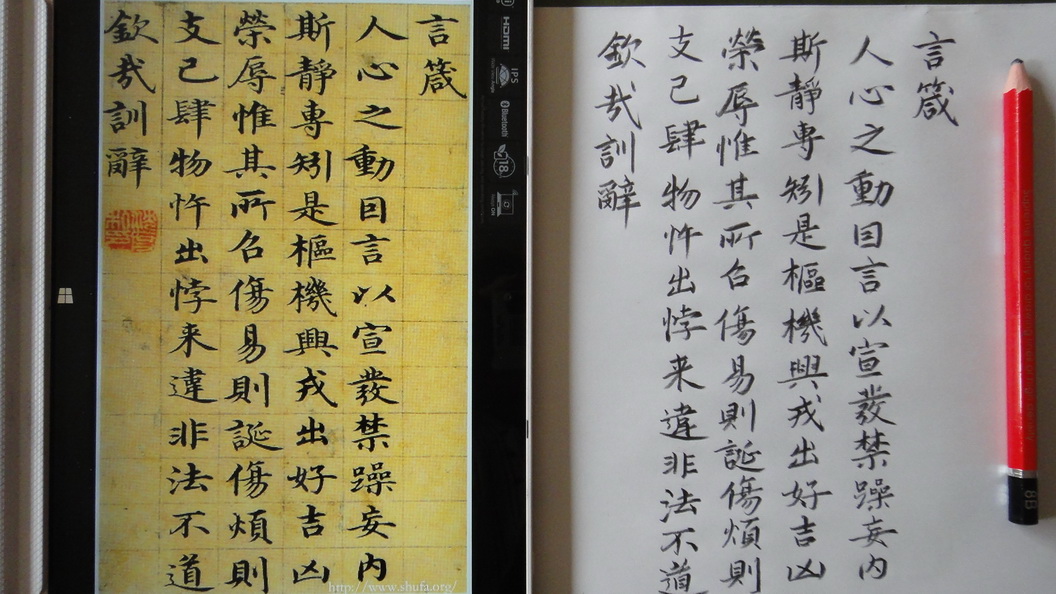 言箴
人心之動因言以宣發禁躁妄內
斯靜專矧是樞機興戎出好吉凶
榮辱惟其所召傷易則誕傷煩則
支己肆物忤出悖来違非法不道
欽哉訓辭
http://www.shufa.org/
HDMI
IPS
Bluetooth
言箴
人心之動因言以宣發禁躁妄內
斯靜專矧是樞機興戎出好吉凶
榮辱惟其所召傷易則誕傷煩則
支己肆物忤出悖来違非法不道
欽哉訓辭
8B